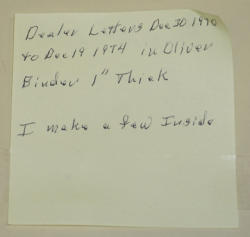 Dealer Letters Dec 30 1970
to Dec 19 1974 in Oliver
Binder 1" Thick
I make a few Inside